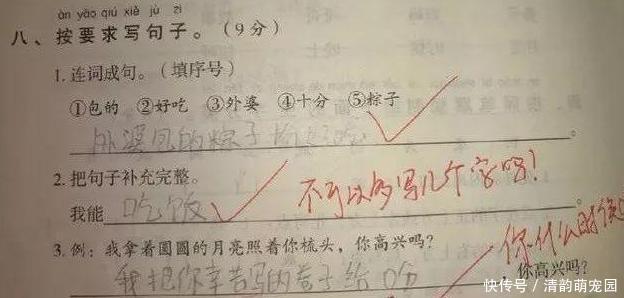 àn yāo qiú xiě jù zi
八、按要求写句子。(9分)
1.连词成句。(填序号)
①包的 ②好吃 ③外婆 ④十分 ⑤粽子
外婆包的粽子十分好吃。
2.把句子补充完整。
我能吃饭。
不可以多写几个字吗!
3.例:我拿着圆圆的月亮照着你梳头,你高兴吗?
你什么时候
我把你辛苦写的卷子给,你高兴吗?
快传号 / 清韵萌宠园